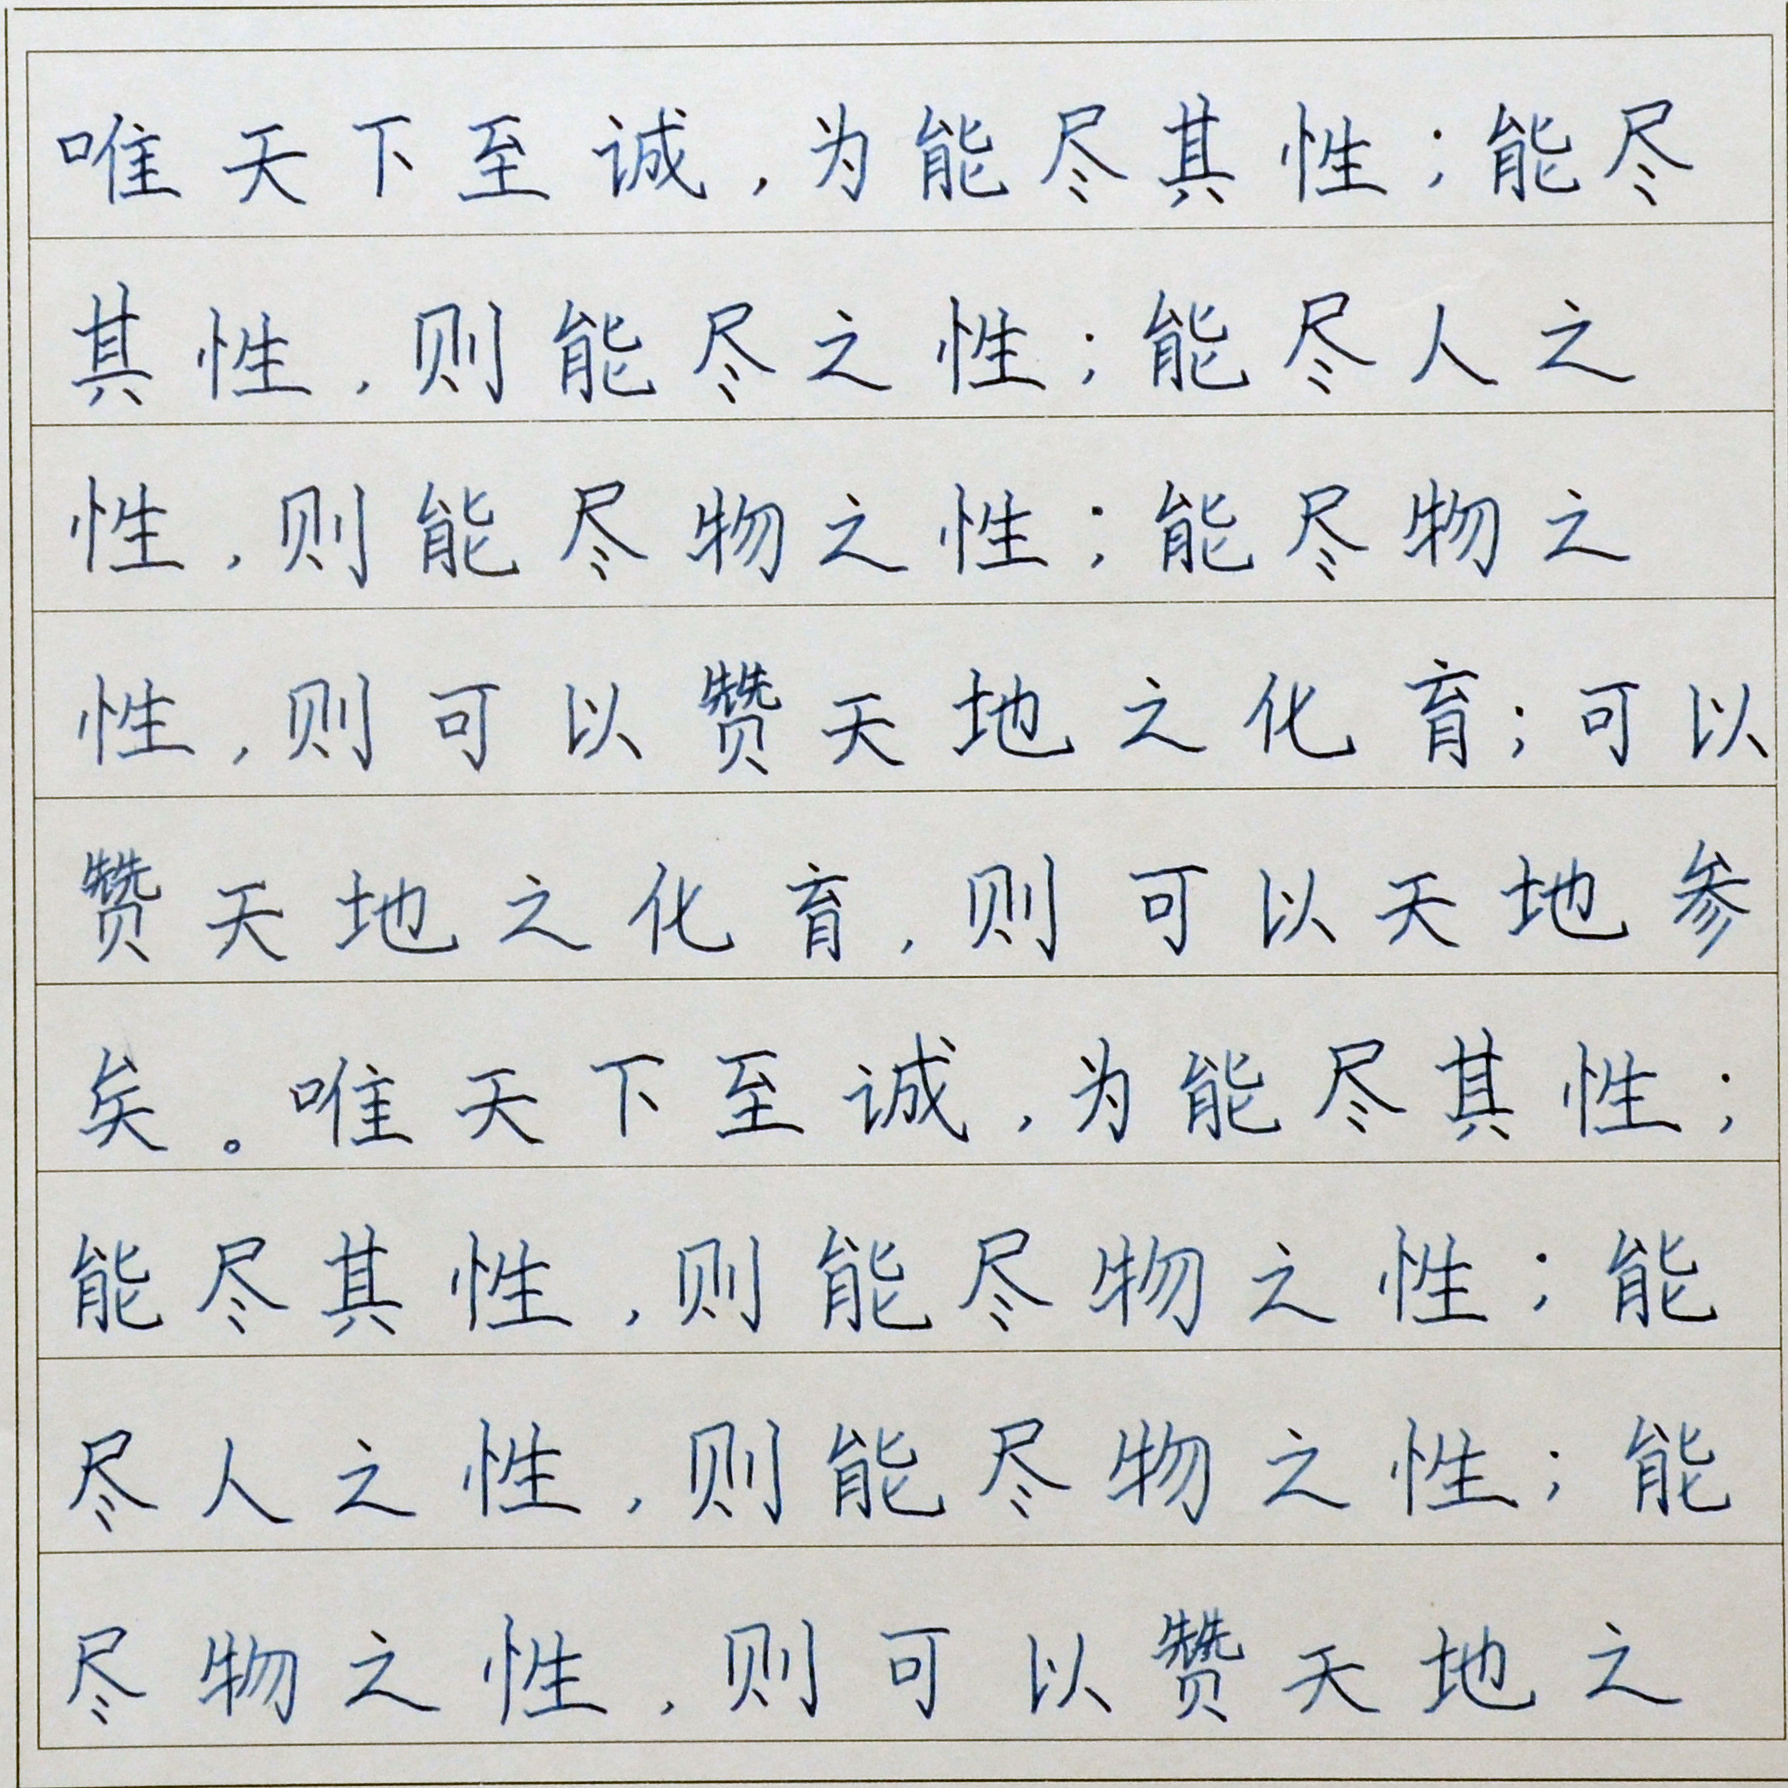 唯天下至诚，为能尽其性；能尽
其性，则能尽之性；能尽人之
性，则能尽物之性；能尽物之
性，则可以赞天地之化育；可以
赞天地之化育，则可以天地参
矣。唯天下至诚，为能尽其性；
能尽其性，则能尽物之性；能
尽人之性，则能尽物之性；能
尽物之性，则可以赞天地之